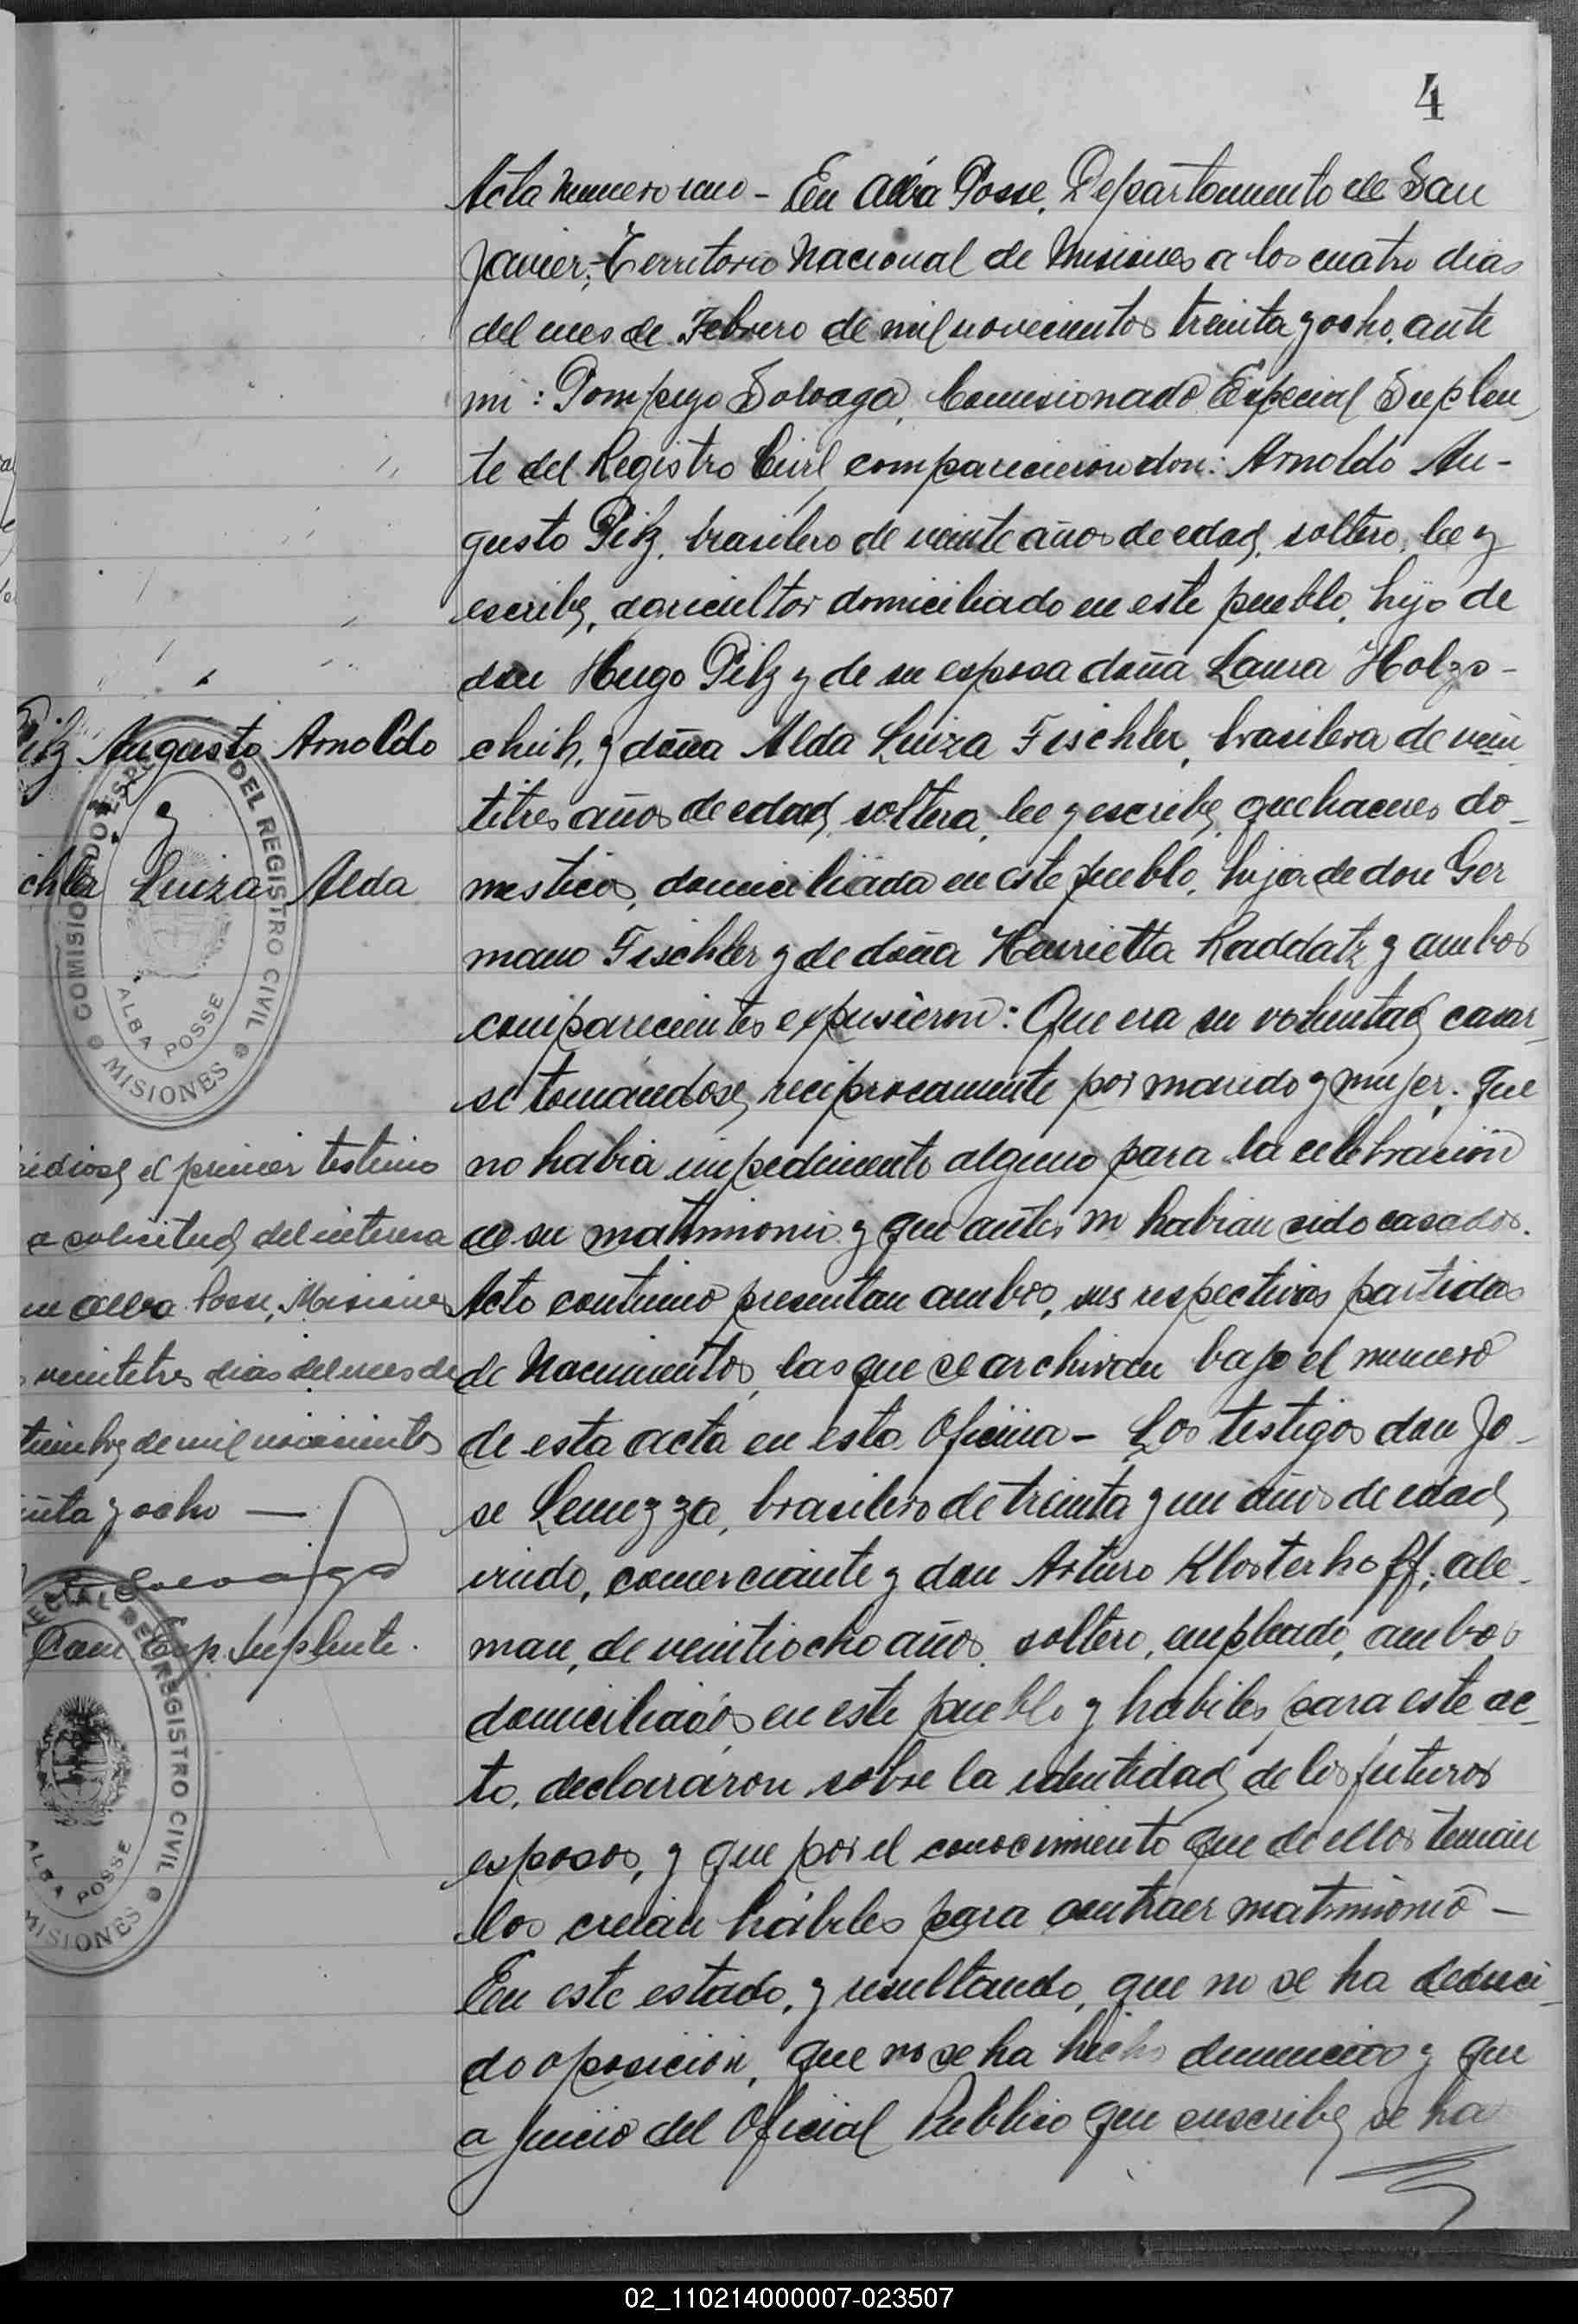 4
Acta numero uno - En Alba Posse, Departamento de San
Javier, Territorio Nacional de Misiones a los cuatro dias
del mes de Febrero de mil novecientos treinta y ocho, ante
mi: Pompeyo Solvaga, Comisionado Especial Suplen
te del Registro Civil, comparecieron don: Arnoldo Au-
gusto Pilz, brasilero de veinte años de edad, soltero, lee y
escribe, agricultor domiciliado en este pueblo, hijo de
don Hugo Pilz y de su esposa doña Laura Holzs-
chuh, y doña Alda Luiza Fischler, brasilera de vein
titres años de edad, soltera, lee y escribe, quehaceres do-
mesticos, domiciliada en este pueblo, hija de don Ger
mano Fischler y de doña Henrietta Raddatz y ambos
comparecientes expusieron: Que era su voluntad casar-
se tomandose, reciprocamente por marido y mujer. que
no habia impedimento alguno para la celebracion
de su matrimonio y que antes no habian sido casados.
Acto continuo presentan ambos, sus respectivas partidas
de Nacimientos, las que se archivan bajo el numero
de esta acta en esta Oficina - Los testigos don Jo-
se Lemezza, brasilero de treinta y un años de edad,
viudo, comerciante y don Arturo Klosterhoff, ale-
man, de veintiocho años, soltero, empleado, ambos
domiciliados en este pueblo y habiles para este ac-
to, declararon sobre la identidad de los futuros
esposos, y que por el conocimiento que de ellos tenian
los creian hábiles para contraer matrimonio -
En este estado, y resultando, que no se ha deduci-
do oposición, que no se ha hecho denuncias y que
a juicio del Oficial Publico que suscribe, se ha
Pilz Augusto Arnoldo
y
chler Luiza Alda
COMISIONADO ESPECIAL DEL REGISTRO CIVIL
ALBA POSSE
MISIONES
pidiose el primer testimo
a solicitud del interesa
en Alba Posse, Misiones
veintitres dias del mes de
tiembre de mil novecientos
inta y ocho —
Solvaga
Com Esp. Suplente.
ECIAL DEL REGISTRO CIVIL
ALBA POSSE
MISIONES
02_110214000007-023507